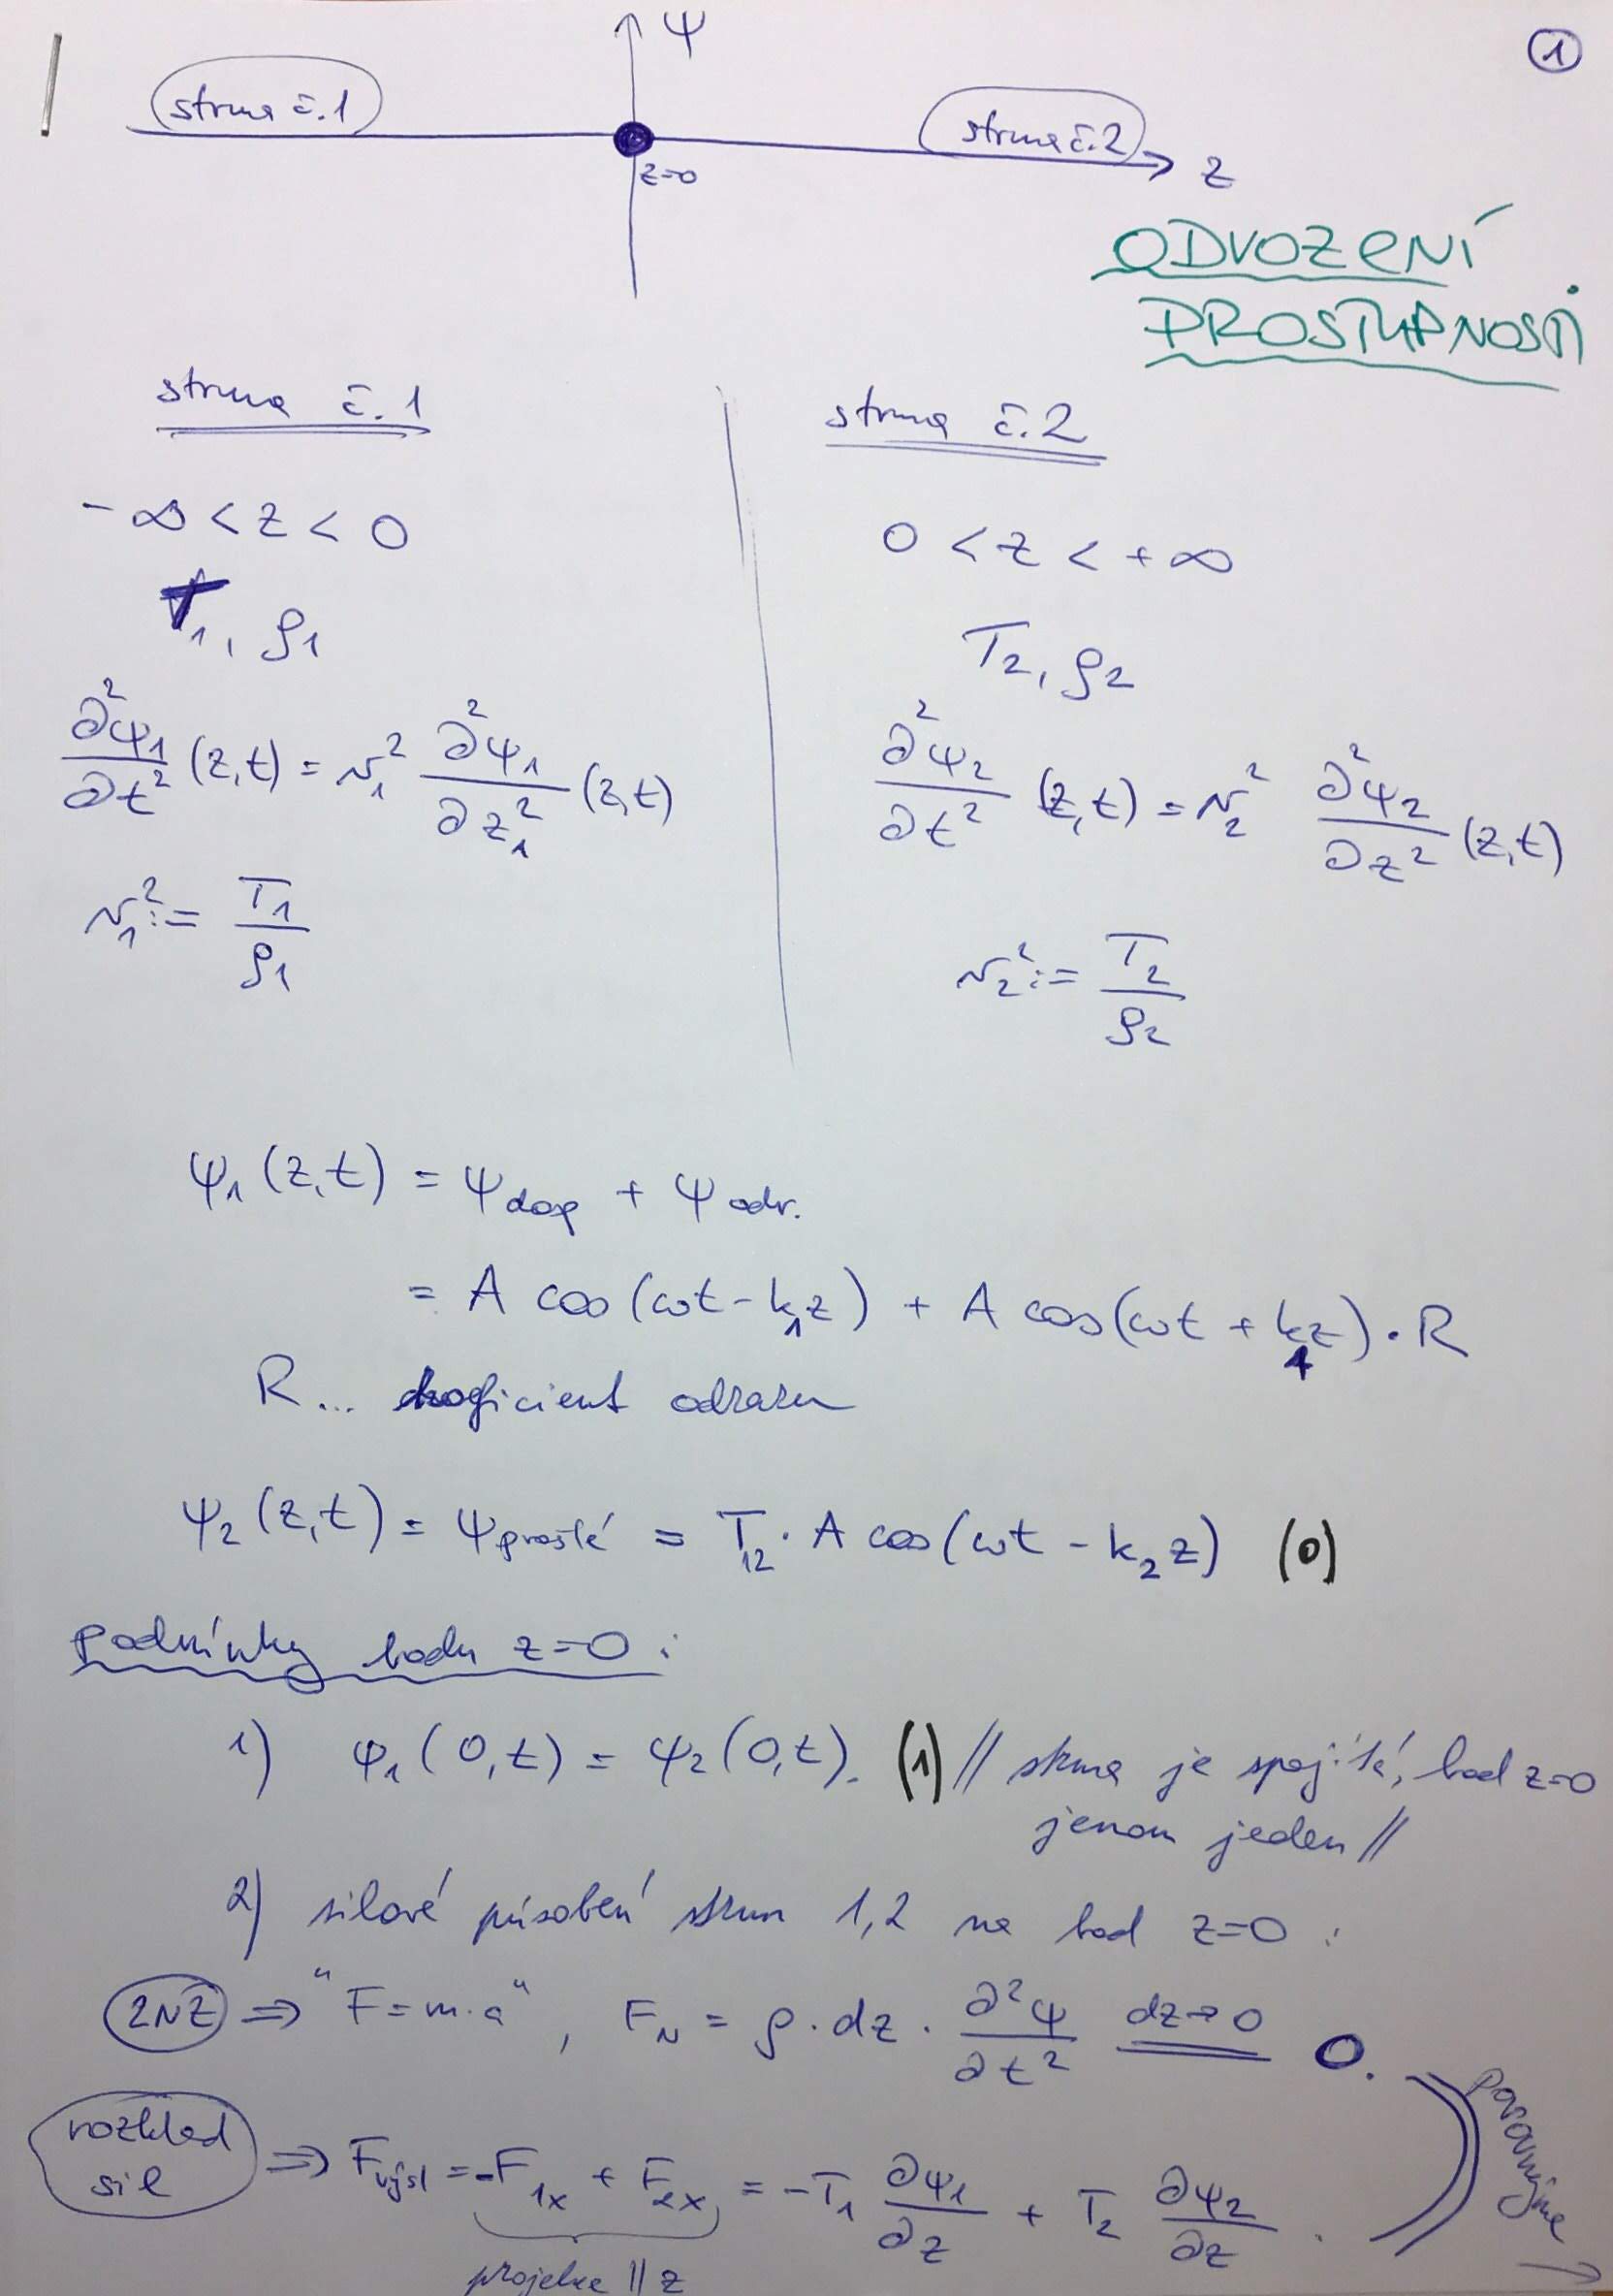 ψ
①
struna č.1
struna č.2
z=0
z
ODVOZENÍ
PROSTUPNOSTI
struna č.1
struna č.2
-∞ < z < 0
0 < z < +∞
T₁, ρ₁
T₂, ρ₂
∂²ψ₁/∂t² (z,t) = v₁² ∂²ψ₁/∂z₁² (z,t)
∂²ψ₂/∂t² (z,t) = v₂² ∂²ψ₂/∂z² (z,t)
v₁² := T₁/ρ₁
v₂² := T₂/ρ₂
ψ₁(z,t) = ψdop + ψodr.
= A cos(ωt - k₁z) + A cos(ωt + k₁z) · R
R... koeficient odrazu
ψ₂(z,t) = ψprošlé = T₁₂ · A cos(ωt - k₂z) (0)
podmínky bodu z=0 :
1) ψ₁(0,t) = ψ₂(0,t). (1) // struna je spojitá, bod z=0
jenom jeden //
2) silové působení strun 1,2 na bod z=0 :
2NZ ⇒ "F = m·a", F_N = ρ · dz · ∂²ψ/∂t² dz→0 0.
rozklad
sil
⇒ Fvýsl = -F₁ₓ + F₂ₓ = -T₁ ∂ψ₁/∂z + T₂ ∂ψ₂/∂z .
projekce || z
porovnejme
→